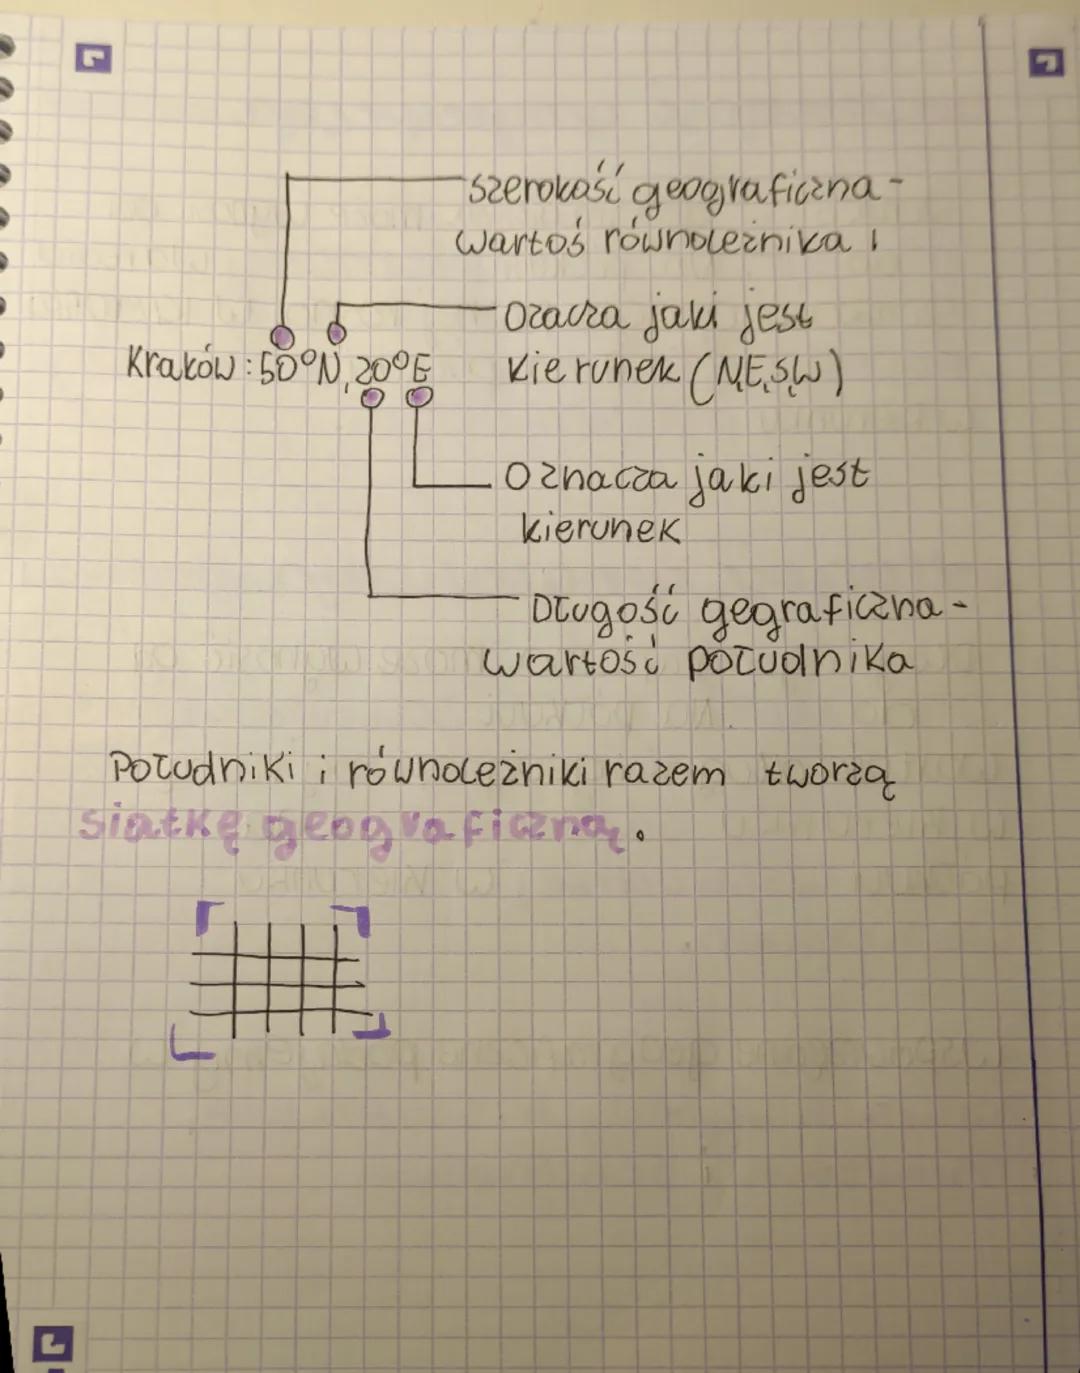 szerokość geograficzna -
wartoś równoleżnika i
Ozacza jaki jest
Kraków: 50°N, 20°E
kierunek (N,E,S,W)
Oznacza jaki jest
kierunek
Długość gegraficzna -
wartość południka
Południki i równoleżniki razem tworzą
siatkę geograficzną.